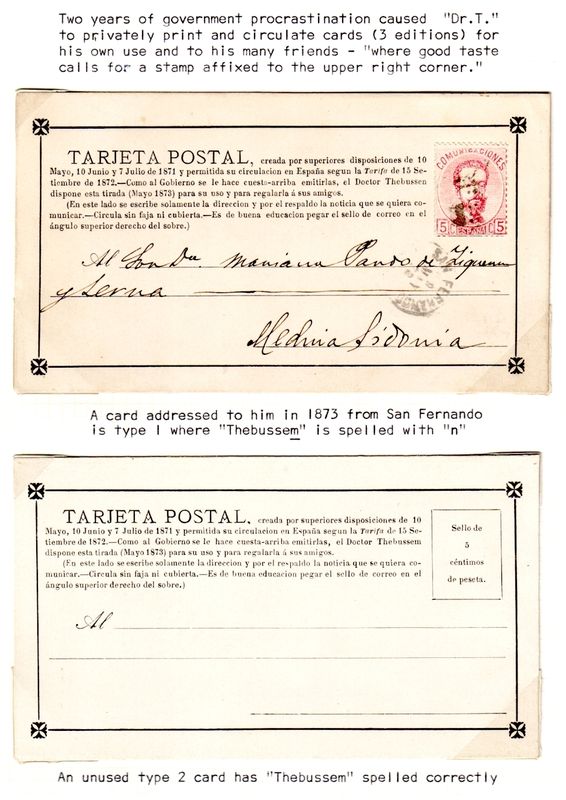 Two years of government procrastination caused "Dr.T."
to privately print and circulate cards (3 editions) for
his own use and to his many friends - "where good taste
calls for a stamp affixed to the upper right corner."
TARJETA POSTAL, creada por superiores disposiciones de 10
Mayo, 10 Junio y 7 Julio de 1871 y permitida su circulacion en España segun la Tarifa de 15 Se-
tiembre de 1872.—Como al Gobierno se le hace cuesta-arriba emitirlas, el Doctor Thebussen
dispone esta tirada para su uso y para regalarla á sus amigos.
(En este lado se escribe solamente la direccion y por el respaldo la noticia que se quiera co-
municar.—Circula sin faja ni cubierta.—Es de buena educacion pegar el sello de correo en el
ángulo superior derecho del sobre.)
COMUNICACIONES
5 C ESPAÑA C 5
SAN FERNANDO
Al Mariana Pardo de
y Serna
Medina Sidonia
A card addressed to him in 1873 from San Fernando
is type I where "Thebussem" is spelled with "n"
TARJETA POSTAL, creada por superiores disposiciones de 10
Mayo, 10 Junio y 7 Julio de 1871 y permitida su circulacion en España segun la Tarifa de 15 Se-
tiembre de 1872.—Como al Gobierno se le hace cuesta-arriba emitirlas, el Doctor Thebussem
dispone esta tirada (Mayo 1873) para su uso y para regalarla á sus amigos.
(En este lado se escribe solamente la direccion y por el respaldo la noticia que se quiera co-
municar.—Circula sin faja ni cubierta.—Es de buena educacion pegar el sello de correo en el
ángulo superior derecho del sobre.)
Sello de
5
céntimos
de peseta.
Al
An unused type 2 card has "Thebussem" spelled correctly